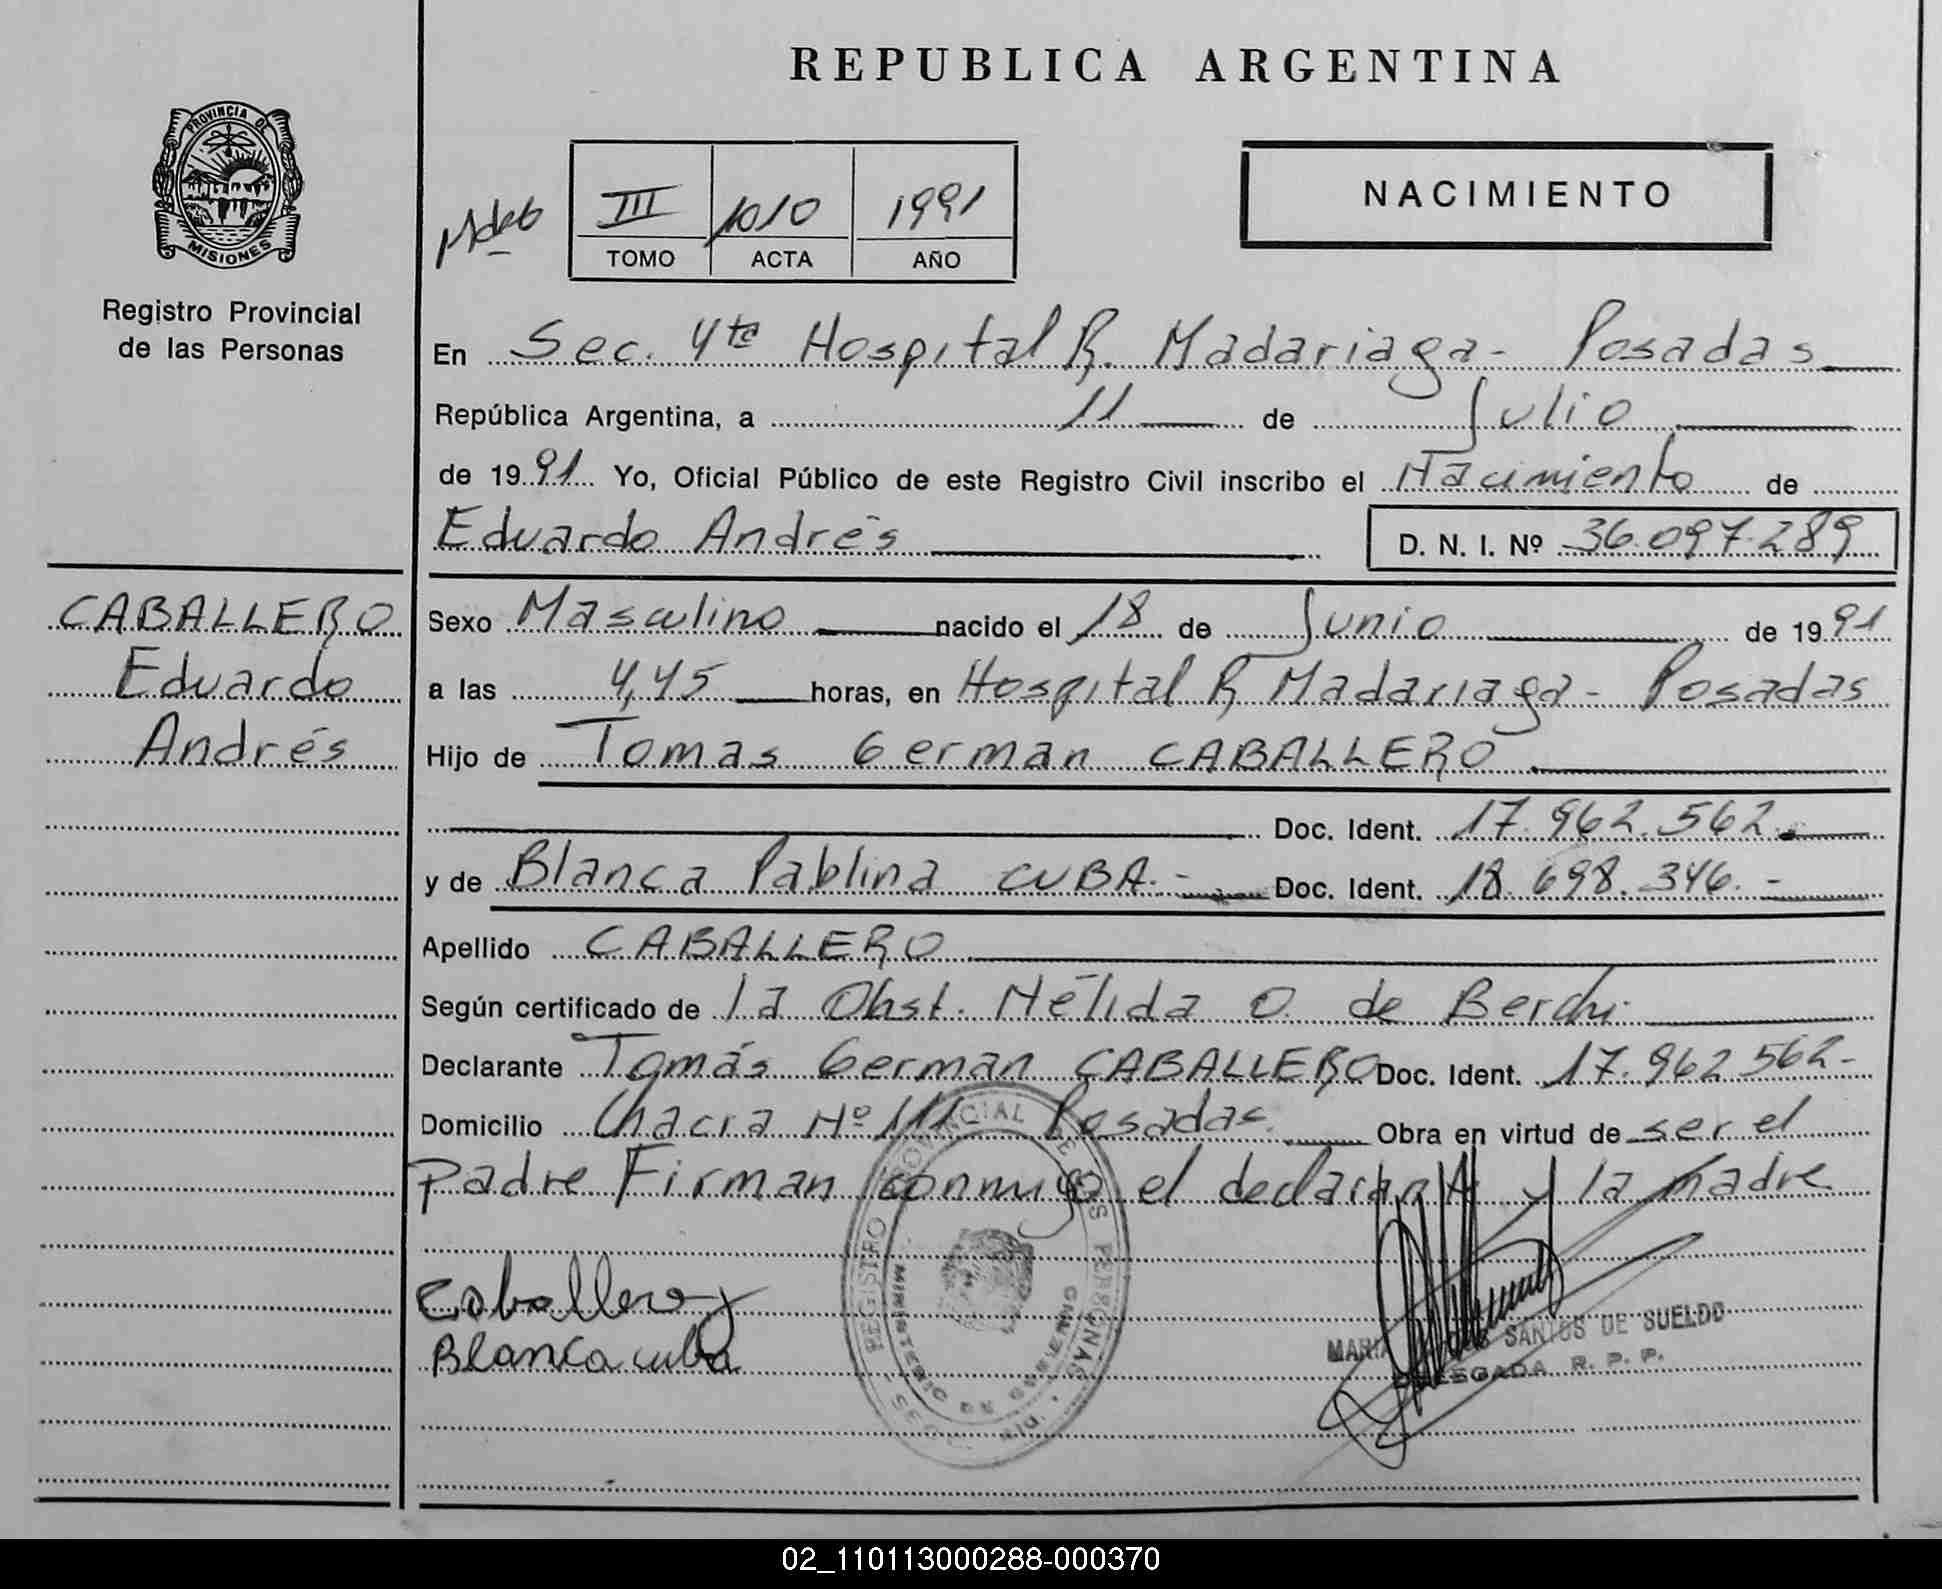 REPUBLICA ARGENTINA
PROVINCIA DE
MISIONES
Registro Provincial
de las Personas
III 1010 1991
TOMO ACTA AÑO
NACIMIENTO
En Sec. 4ta Hospital R. Madariaga - Posadas
República Argentina, a 11 de Julio
de 1991 Yo, Oficial Público de este Registro Civil inscribo el Nacimiento de
Eduardo Andrés D. N. I. Nº 36.097.289
CABALLERO
Eduardo
Andrés
Sexo Masculino nacido el 18 de Junio de 1991
a las 4,45 horas, en Hospital R Madariaga - Posadas
Hijo de Tomas German CABALLERO
Doc. Ident. 17.962.562.
y de Blanca Pablina CUBA.- Doc. Ident. 18.698.346.-
Apellido CABALLERO
Según certificado de la Obst. Nélida O. de Berchi
Declarante Tomás German CABALLERO Doc. Ident. 17.962 562-
Domicilio Chacra Nº 111 Posadas. Obra en virtud de ser el
padre Firman conmigo el declarante y la madre
Caballero
Blanca cuba
REGISTRO PROVINCIAL DE LAS PERSONAS
MINISTERIO DE GOBIERNO
MARIA SANTOS DE SUELDO
DELEGADA R. P. P.
02_110113000288-000370